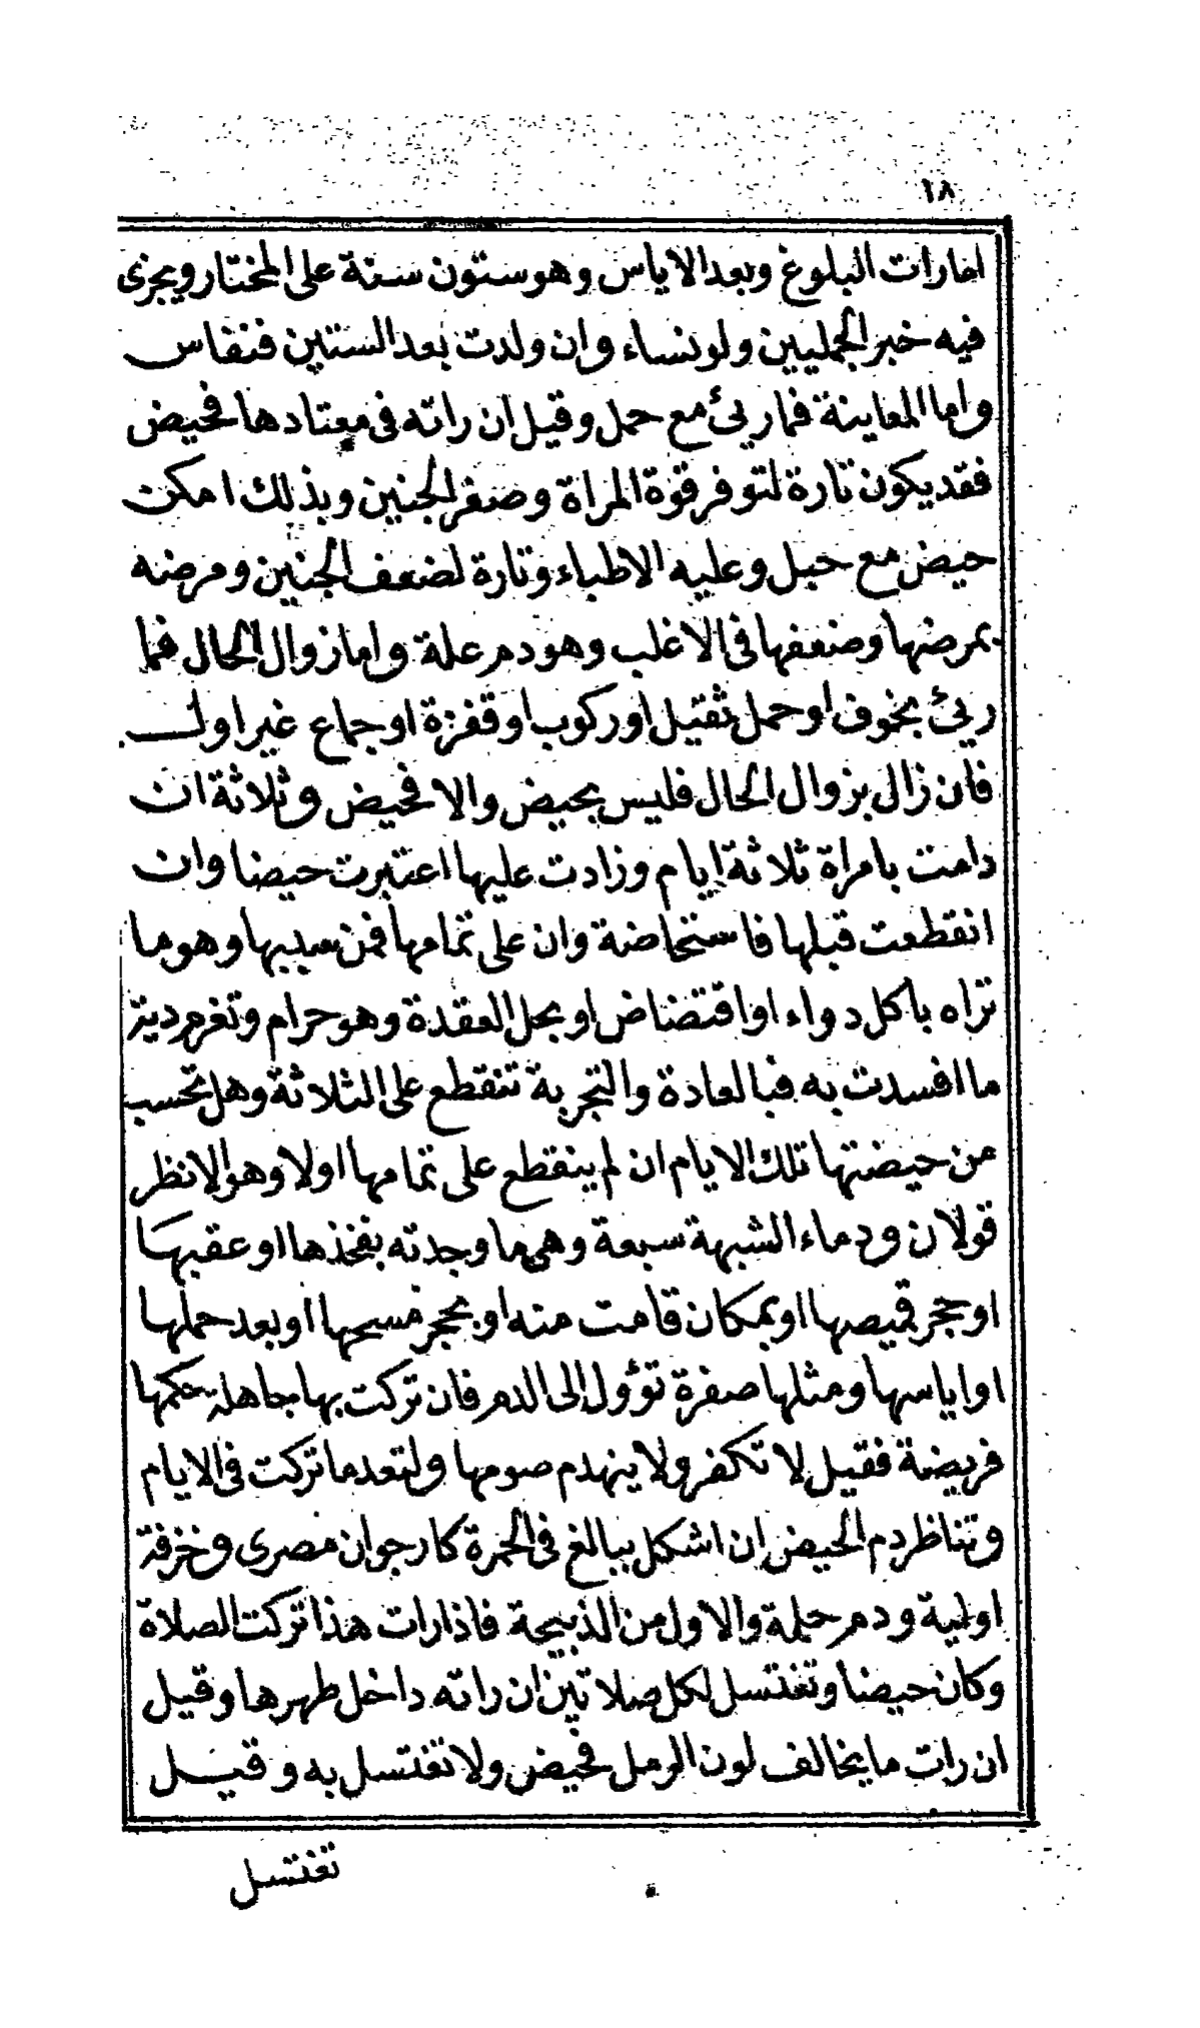 ١٨
امارات البلوغ وبعد الاياس وهو ستون سنة على المختار ويجزى
فيه خبر الجمليين ولو نساء وان ولدت بعد الستين فنفاس
واما المعاينة فما ريئ مع حمل وقيل ان راته فى معتادها فحيض
فقد يكون تارة لتوفر قوة المراة وصغر الجنين وبذلك امكن
حيض مع حبل وعليه الاطباء وتارة لضعف الجنين ومرضه
بمرضها وضعفها فى الاغلب وهو دم علة واما زوال الحال فما
ريئ بخوف او حمل ثقيل او ركوب او قفزة او جماع غير اول
فان زال بزوال الحال فليس بحيض والا فحيض وثلاثة ان
دامت بامراة ثلاثة ايام وزادت عليها اعتبرت حيضا وان
انقطعت قبلها فاستحاضة وان على تمامها فمن سببها وهو ما
تراه باكل دواء او اقتضاض او بحل العقدة وهو حرام وتغرم دية
ما افسدت به فبالعادة والتجربة تنقطع على الثلاثة وهل تحسب
من حيضتها تلك الايام ان لم ينقطع على تمامها اولا وهو الانظر
قولان ودماء الشبهة سبعة وهى ما وجدته بفخذها او عقبها
او حجر قميصها او بمكان قامت منه او بحجر مسحها او بعد حملها
او اياسها ومثلها صفرة تؤول الى الدم فان تركت بها جاهلة حكمها
فريضة فقيل لا تكفر ولا ينهدم صومها ولتعد ما تركت فى الايام
وتناظر دم الحيض ان اشكل ببالغ فى الحمرة كارجوان مصرى وخزفة
اولية ودم حلمة والاول من الذبيحة فاذا رات هذا تركت الصلاة
وكان حيضا وتغتسل لكل صلاتين ان راته داخل طهرها وقيل
ان رات ما يخالف لون الرمل فحيض ولا تغتسل به وقيل
تغتسل